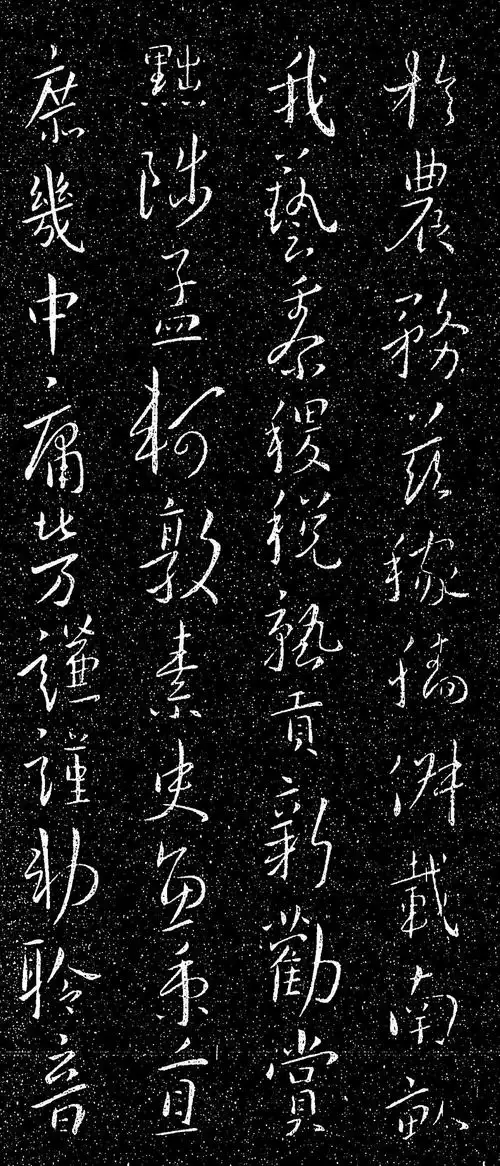 於農務茲稼穡俶載南畝
我藝黍稷稅熟貢新勸賞
黜陟孟軻敦素史魚秉直
庶幾中庸勞謙謹勑聆音